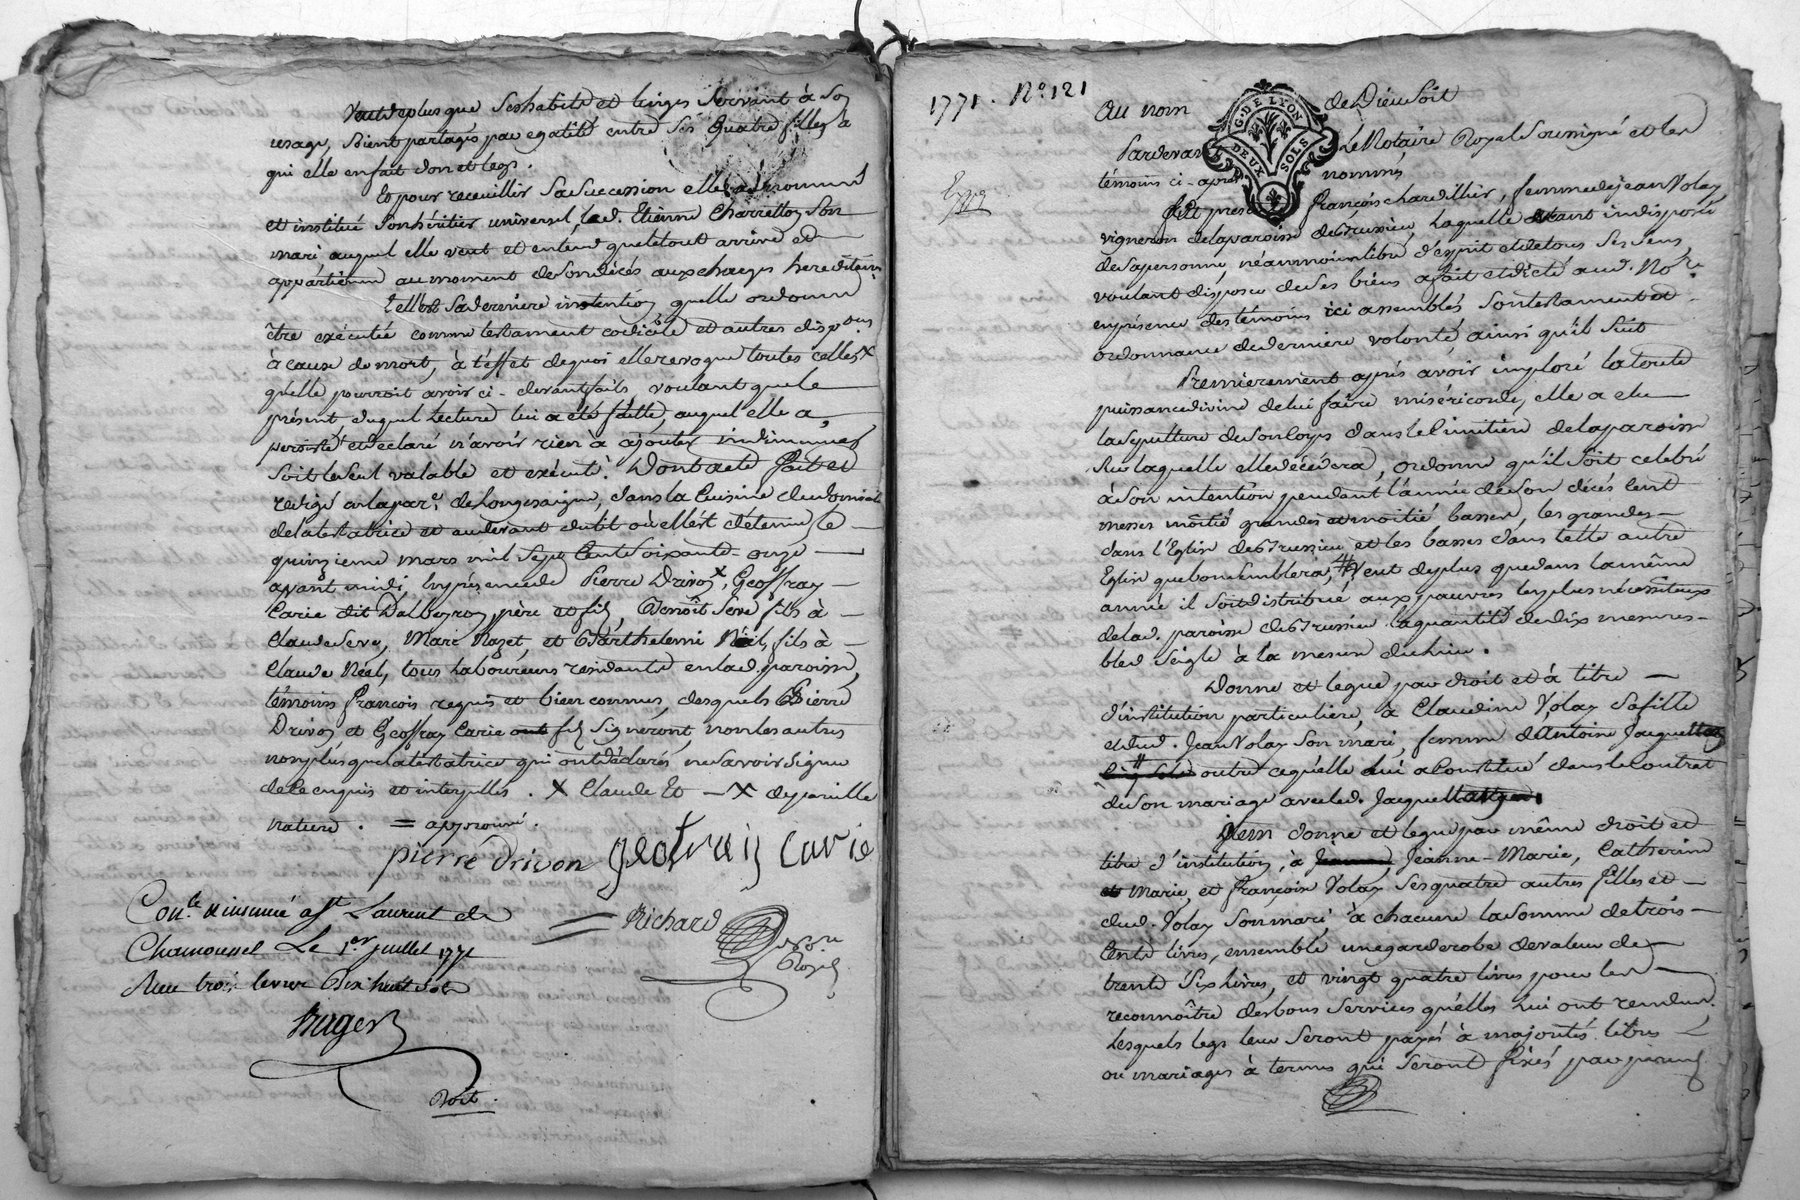 Veut de plus que ses habits et linges servant à son
usage, soient partagés par egalité entre ses quatre filles a
qui elle en fait don et legs.
Et pour receuillir sa succession elle a denommé
et institué son héritier universel, led. Etienne Charretton son
mari auquel elle veut et entend que le tout arrive et
appartienne au moment de son décès aux charges hereditaires.
telle est sa derniere intention quelle ordonne
être exécutée comme testament codicile et autres disp.ons
à cause de mort, à l'effet de quoi elle revoque toutes celles x
qu'elle pourroit avoir ci-devant faits, voulant que le
présent, duquel lecture lui a été faitte, auquel elle a
persisté et déclaré n'avoir rien à ajouter ni diminuer
soit le seul valable et exécuté. Dont acte fait et
redigé en la par. de Longessaigne, dans la cuisine du domicile
de la testatrice et au devant du lit où elle est détenue le
quinzieme mars mil sept cent soixante-onze
avant midi, en présence de Pierre Drivon x, Geoffray
Carie dit Dalbeyron père et fils, Benoît Seve fils à
Claude Seve, Marc Nazet, et Barthelemi Néel, fils à
Claude Néel, tous laboureurs residants en lad. paroisse,
témoins françois requis et bien connus, desquels Pierre
Drivon et Geoffray Carie fils signeront, non les autres
non plus que la testatrice qui ont déclarés ne savoir signer
de ce enquis et interpellés. x Claude Et — x de pareille
nature. = approuvé.
pierre drivon geofray carie
Richard
No.re Royal
Con.lé & insinué a St Laurent de
Chamousset Le 1.er juillet 1771
Reçu trois livres dix huit sols
Roger
1771. N.o 121
Au nom de Dieu soit
Pardevant Le Notaire Royal soussigné et les
témoins ci-après nommés,
fut presente françoise chardillier, femme de jean Volay
vigneron de la paroisse de Brussieu, laquelle étant indisposée
de sa personne, néanmoins libre d'esprit et de tous ses sens,
voulant disposer de ses biens a fait et dicté aud. No.re
en présence des témoins ici assemblés son testament et
ordonnance de derniere volonté, ainsi qu'il suit
Premierement après avoir imploré la toute
puissance divine de lui faire miséricorde, elle a elu
la sepulture de son corps dans le cimitière de la paroisse
sur laquelle elle décédera, ordonne qu'il soit celebré
à son intention pendant l'année de son décès cent
messes moitié grandes et moitié basses, les grandes
dans l'Eglise de Brussieu et les basses dans telle autre
Eglise que bon semblera, Veut de plus que dans la même
année il soit distribué aux pauvres les plus nécessiteux
de lad. paroisse de Brussieu la quantité de dix mesures
bled seigle à la mesure du lieu.
Donne et legue par droit et à titre
d'institution particuliere, à Claudine Volay sa fille
et dud. Jean Volay son mari, femme d'Antoine Jacquet
outre ce qu'elle lui a constitué dans le contrat
de son mariage avec led. Jacquet
Item donne et legue par même droit et
titre d'institution, à Jeanne-Marie, Catherine
Marie, et françoise Volay ses quatre autres filles et
dud. Volay son mari, à chacune la somme de trois
cents livres, ensemble une garderobe de valeur de
trente six livres, et vingt quatre livres pour les
reconnoître des bons services qu'elles lui ont rendus,
lesquels legs leur seront payés à majorités libres
ou mariages à termes qui seront fixés par parens
G. DE LYON
DEUX SOLS